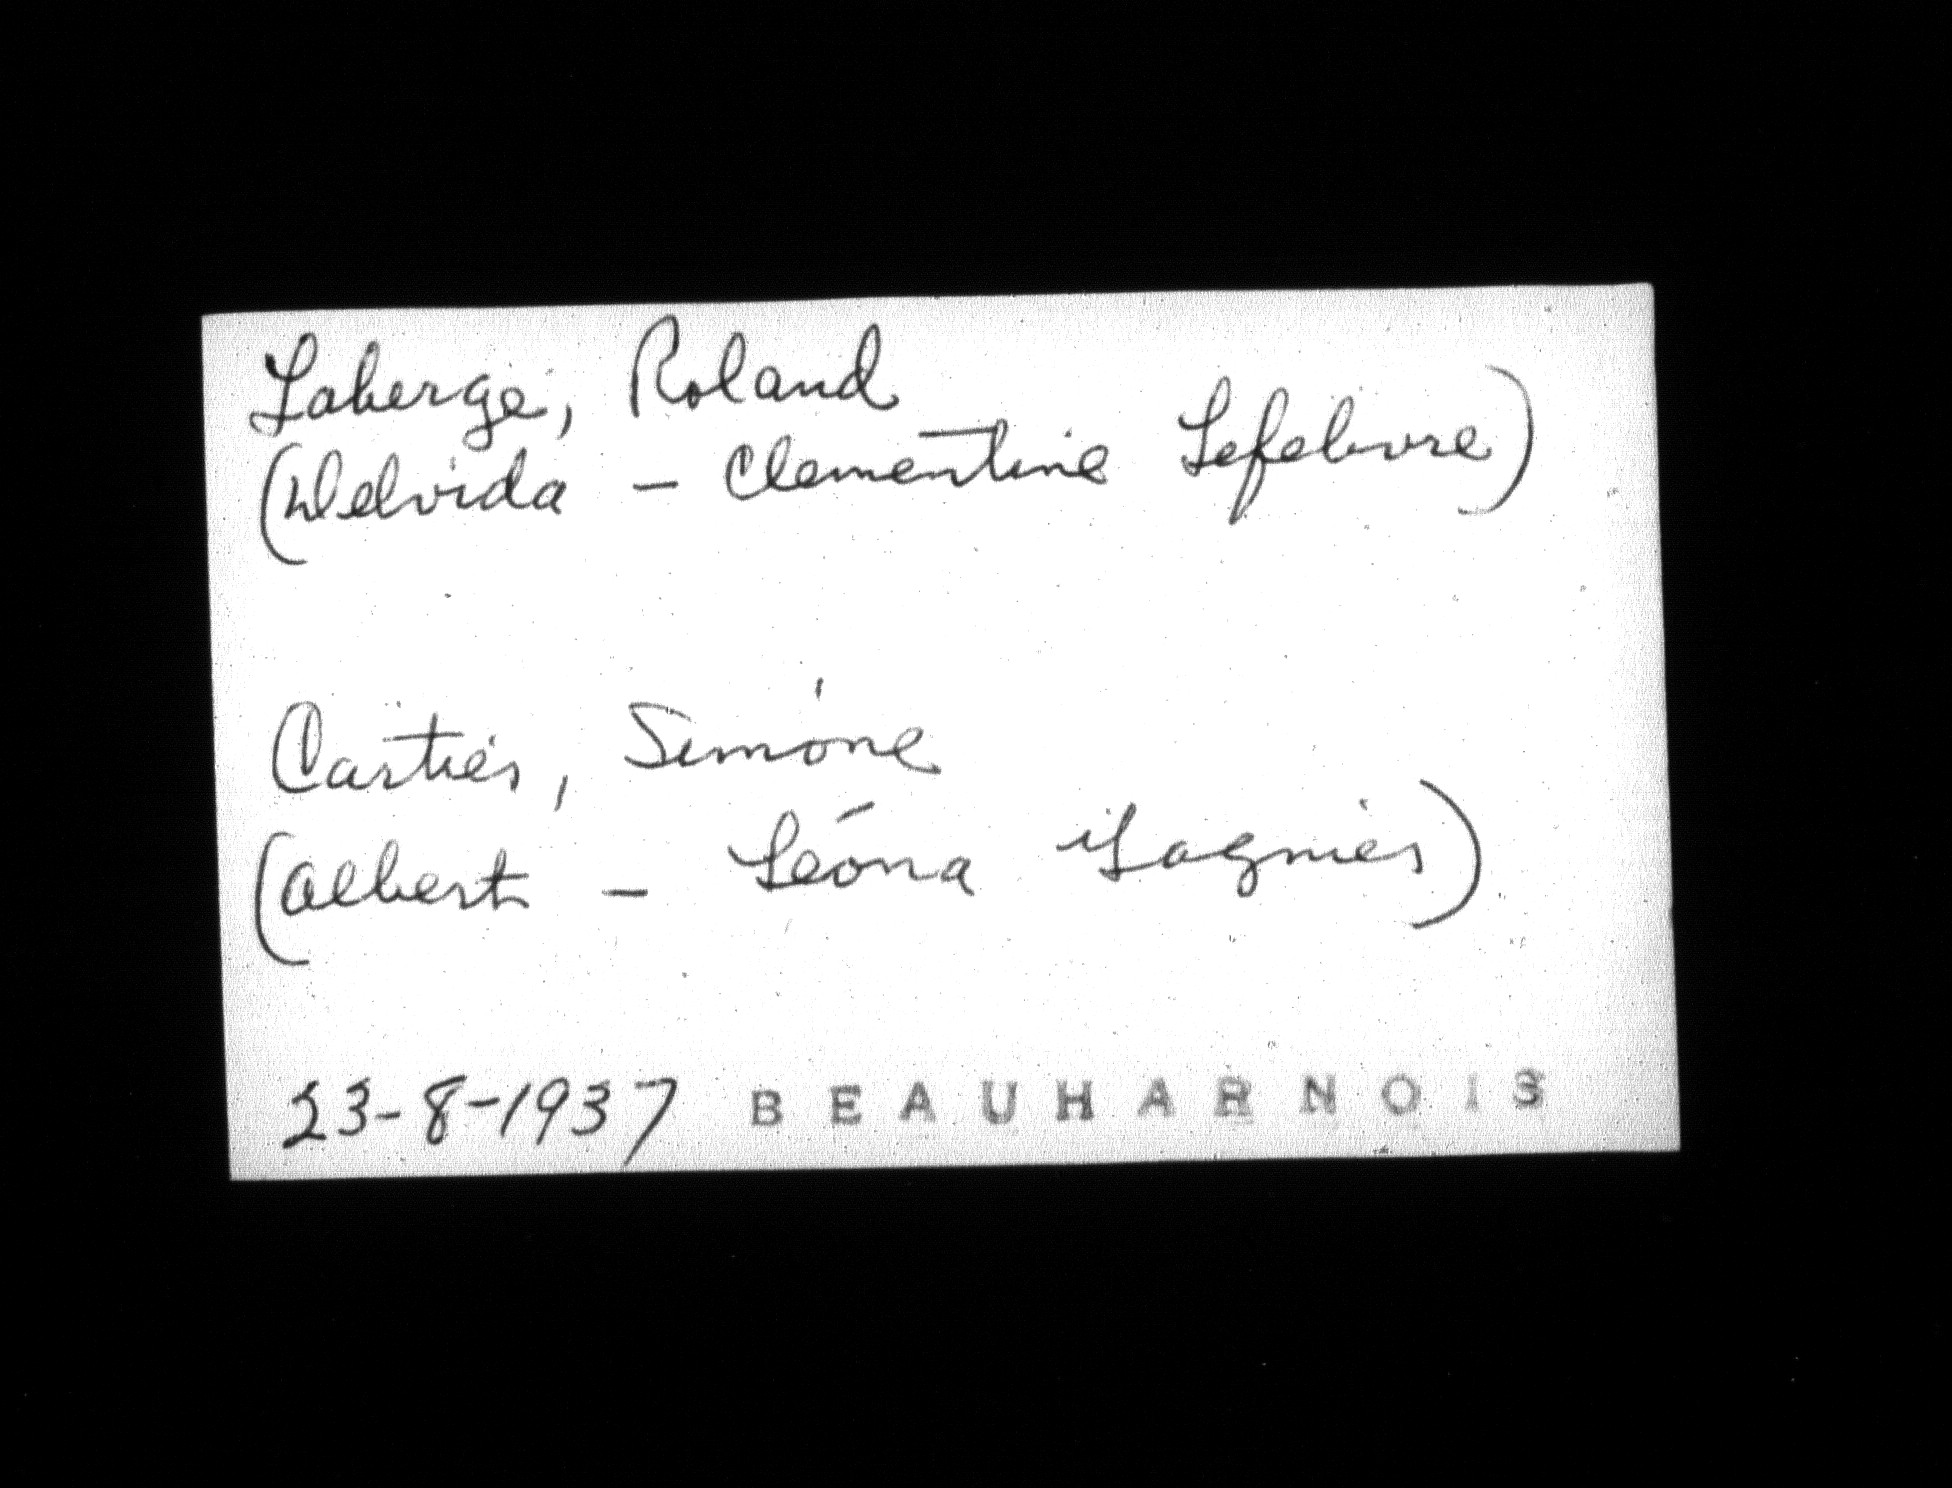 Laberge, Roland
(Delvida - Clementine Lefebvre)
Cartier, Simone
(Albert - Léona Gagnier)
23-8-1937 BEAUHARNOIS